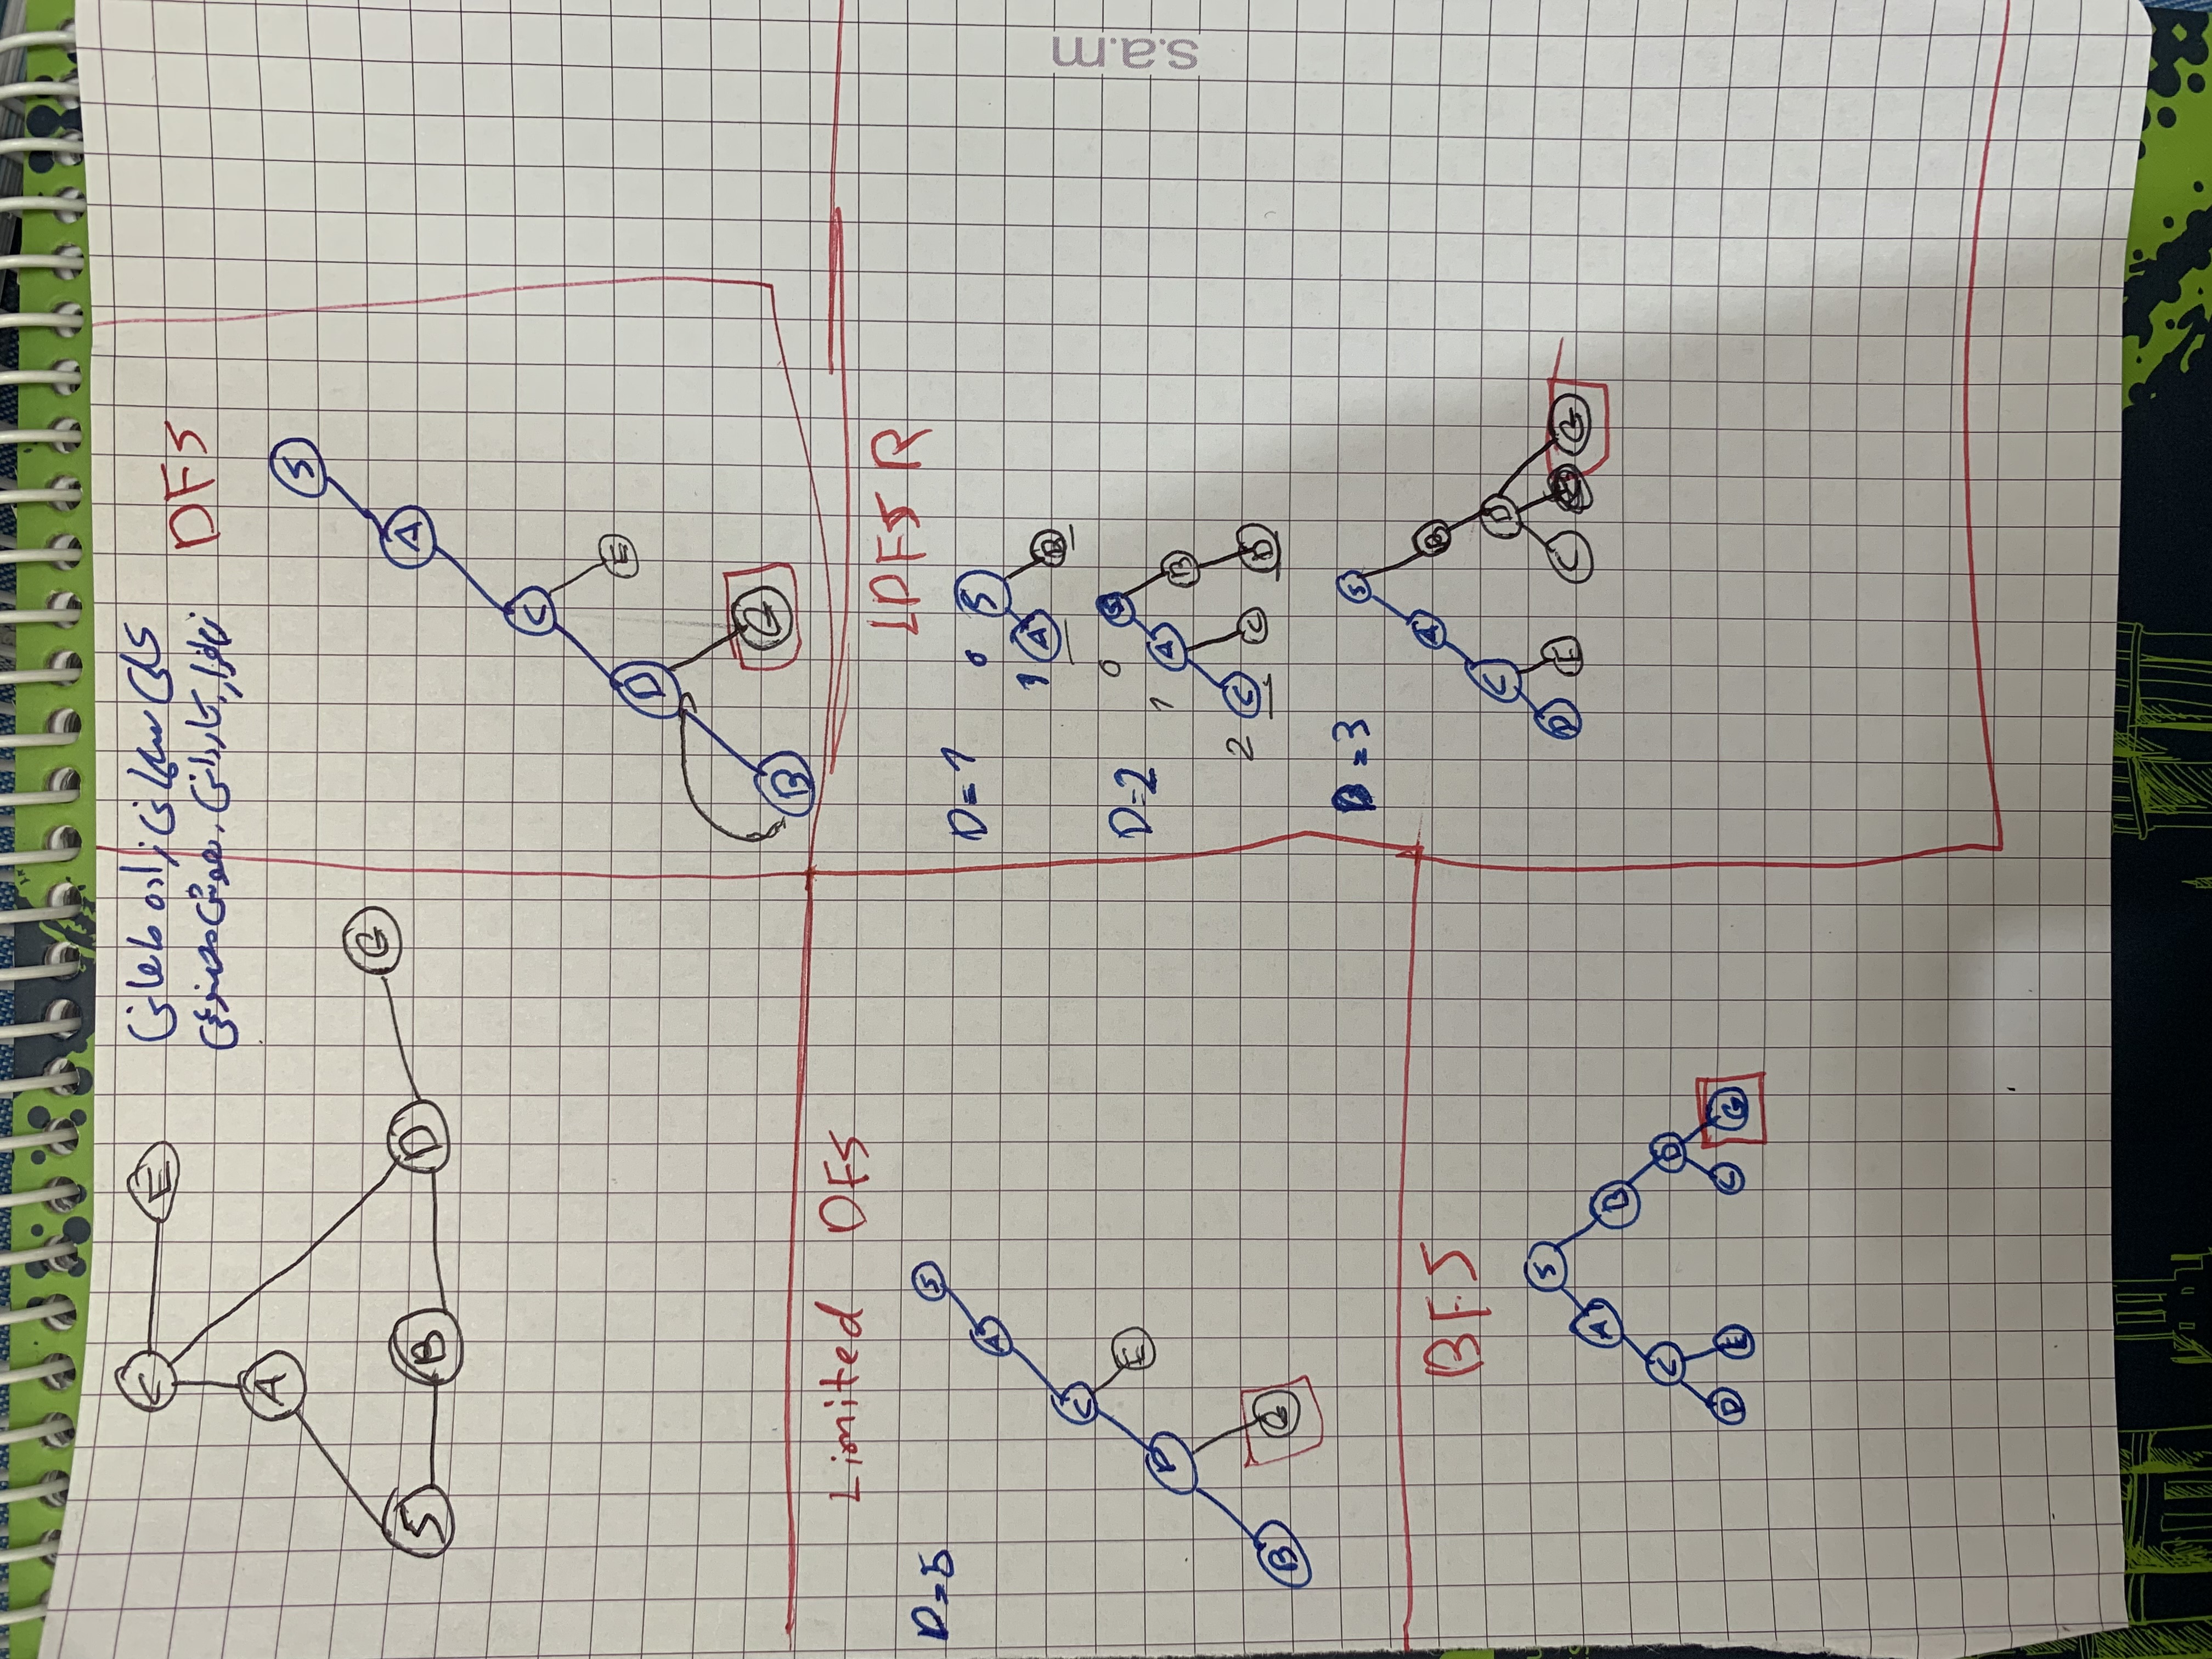 C
E
A
S
B
D
G
علی سلمانی زاده مامقانی
نرم‌افزار، کاردانی، هوش مصنوعی
DFS
S
A
C
D
E
B
G
Limited DFS
D=5
S
A
C
E
D
B
G
LDFS R
D=1
0 S
1 A B
D=2
0 S
1 A B
2 C C D
D=3
S
A B
C D
D E C G
BFS
S
A B
C D
D E C G
s.a.m